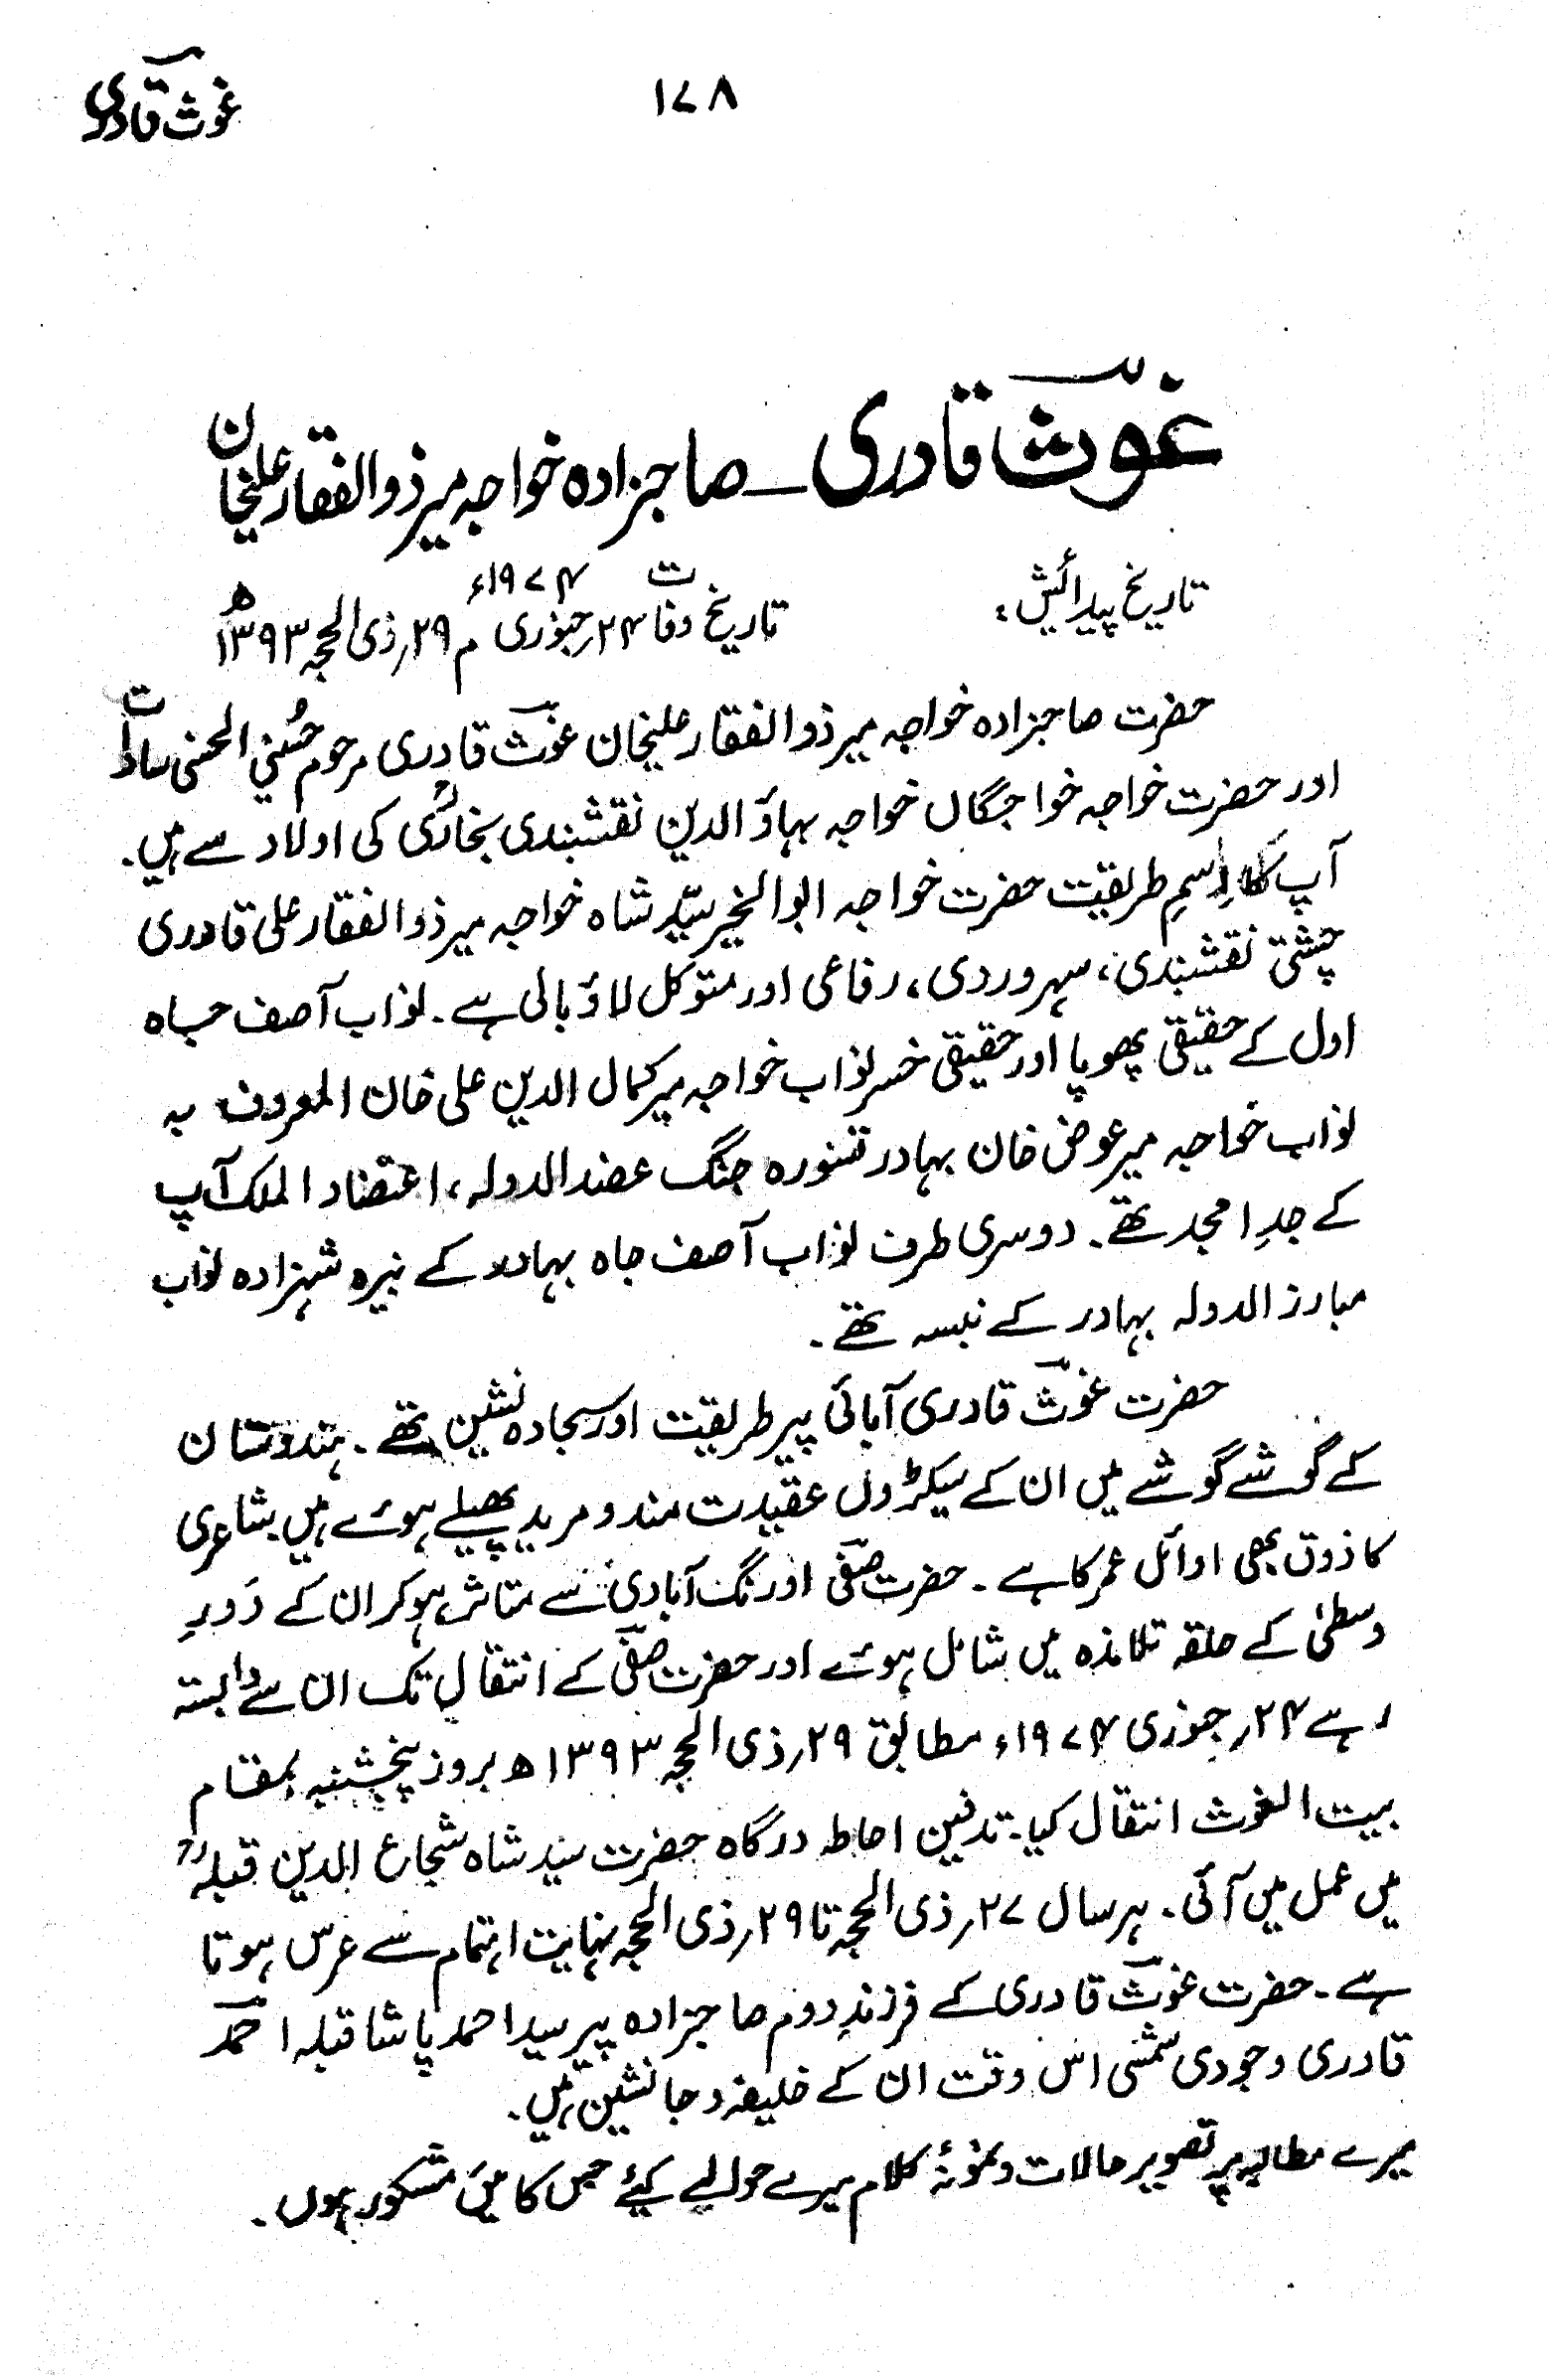 غوثؔ قادری
۱۷۸
غوثؔ قادری ــ صاحبزادہ خواجہ میر ذوالفقار علیخان
تاریخ پیدائش :
تاریخ وفات ۲۴؍جنوری ۱۹۷۴ء م ۲۹؍ذی الحجہ ۱۳۹۳ھ
حضرت صاحبزادہ خواجہ میر ذوالفقار علیخان غوثؔ قادری مرحوم حُسینی الحسنی سادات
اور حضرت خواجہ خواجگاں خواجہ بہاؤ الدین نقشبندی بخاریؒ کی اولاد سے ہیں۔
آپ کا اِسمِ طریقیت حضرت خواجہ ابوالخیر سیّد شاہ خواجہ میر ذوالفقار علی قادری
چشتی نقشبندی، سہروردی، رفاعی اور متوکل لاؤبالی ہے۔ نواب آصف جاہ
اول کے حقیقی پھوپا اور حقیقی خسر نواب خواجہ میر کمال الدین علی خان المعروف بہ
نواب خواجہ میر عوض خان بہادر قسورہ جنگ عضد الدولہ، اعتضاد الملک آپ
کے جدِ امجد تھے۔ دوسری طرف نواب آصف جاہ بہادر کے نبیرہ شہزادہ نواب
مبارز الدولہ بہادر کے نبسہ تھے۔
حضرت غوثؔ قادری آبائی پیر طریقیت اور سجادہ نشین تھے۔ ہندوستان
کے گوشے گوشے میں ان کے سیکڑوں عقیدت مند و مرید پھیلے ہوئے ہیں شاعری
کا ذوق بھی اوائل عمر کا ہے۔ حضرت صفیؔ اورنگ آبادی سے متاثر ہو کر ان کے دَورِ
وسطیٰ کے حلقہ تلامذہ میں شامل ہوئے اور حضرت صفیؔ کے انتقال تک ان سے وابستہ
رہے ۲۴؍جنوری ۱۹۷۴ء مطابق ۲۹؍ذی الحجہ ۱۳۹۳ھ بروز پنجشنبہ بمقام
بیت الغوث انتقال کیا۔ تدفین احاطہ درگاہ حضرت سید شاہ شجاع الدین قبلہؒ
میں عمل میں آئی۔ ہر سال ۲۷؍ذی الحجہ تا ۲۹؍ذی الحجہ نہایت اہتمام سے عرس ہوتا
ہے۔ حضرت غوثؔ قادری کے فرزندِ دوم صاحبزادہ پیر سید احمد پاشا قبلہ احمدؔ
قادری وجودی شمسی اس وقت ان کے خلیفہ و جانشین ہیں۔
میرے مطالبہ پر تصویر حالات و نمونۂ کلام میرے حوالے کیئے جس کا میں مشکور ہوں۔